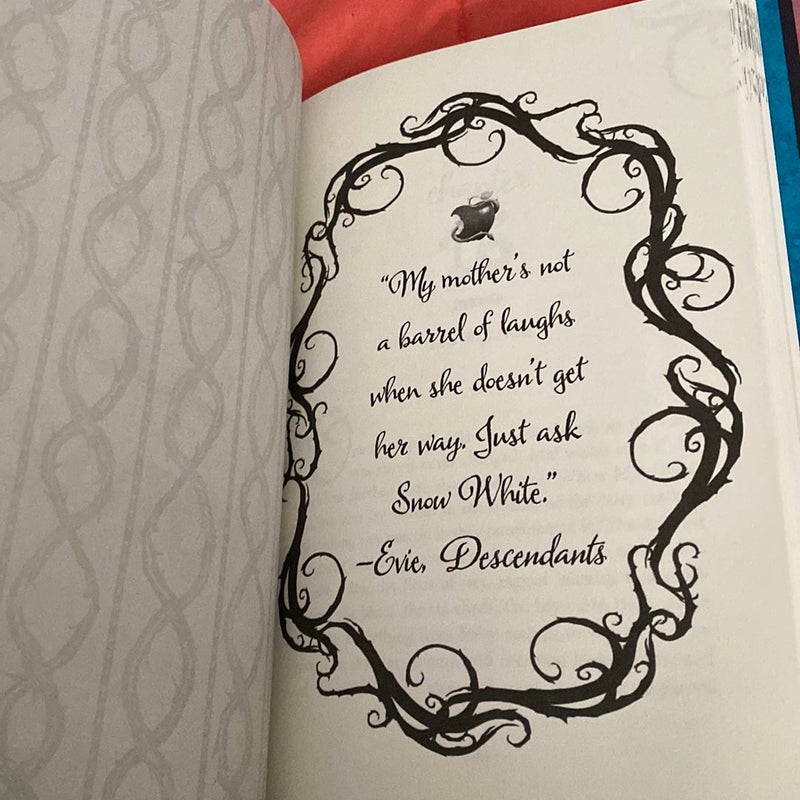 “My mother’s not
a barrel of laughs
when she doesn’t get
her way. Just ask
Snow White.”
–Evie, Descendants